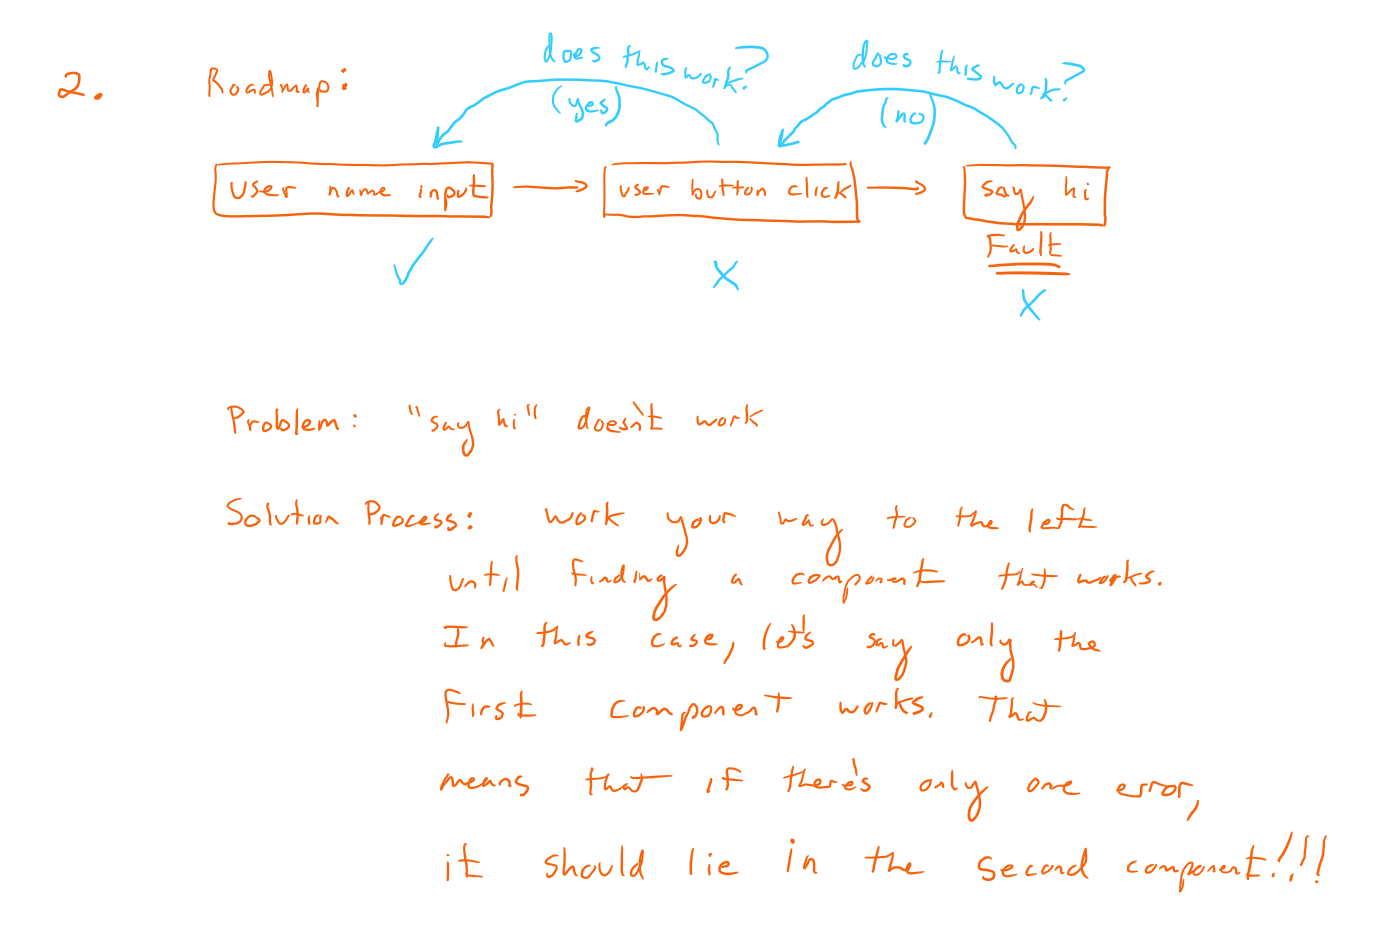 does this work?
does this work?
2. Roadmap:
(yes)
(no)
user name input
user button click
say hi
Fault
Problem: "say hi" doesn't work
Solution Process: work your way to the left
until finding a component that works.
In this case, let's say only the
first component works. That
means that if there's only one error,
it should lie in the second component!!!